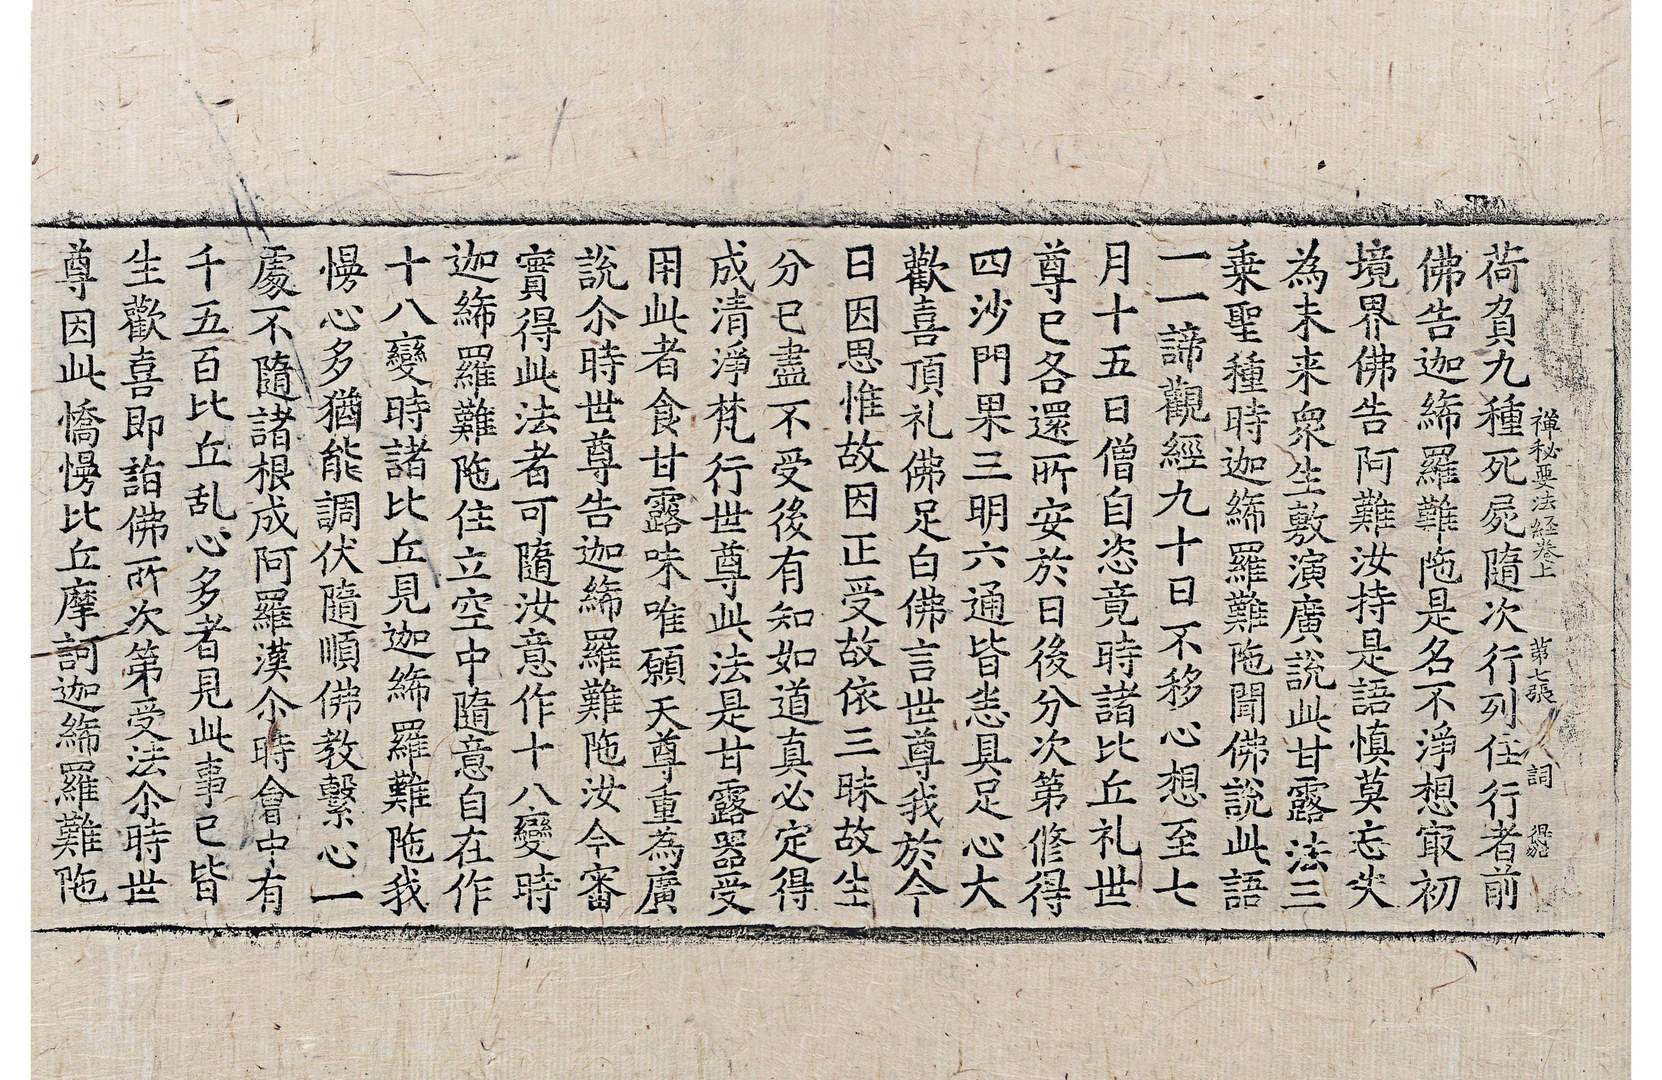 禪秘要法經卷上　第七張　詞
荷負九種死屍隨次行列住行者前
佛告迦絺羅難陁是名不淨想㝡初
境界佛告阿難汝持是語慎莫忘失
為未来衆生敷演廣說此甘露法三
乗聖種時迦絺羅難陁聞佛說此語
一一諦觀經九十日不移心想至七
月十五日僧自恣竟時諸比丘礼世
尊已各還所安於日後分次第修得
四沙門果三明六通皆悉具足心大
歡喜頂礼佛足白佛言世尊我於今
日因思惟故因正受故依三昧故生
分已盡不受後有知如道真必定得
成清淨梵行世尊此法是甘露器受
用此者食甘露味唯願天尊重為廣
說尒時世尊告迦絺羅難陁汝今審
實得此法者可隨汝意作十八變時
迦絺羅難陁住立空中隨意自在作
十八變時諸比丘見迦絺羅難陁我
慢心多猶能調伏隨順佛教繫心一
處不隨諸根成阿羅漢尒時會中有
千五百比丘乱心多者見此事已皆
生歡喜即詣佛所次第受法尒時世
尊因此憍慢比丘摩訶迦絺羅難陁